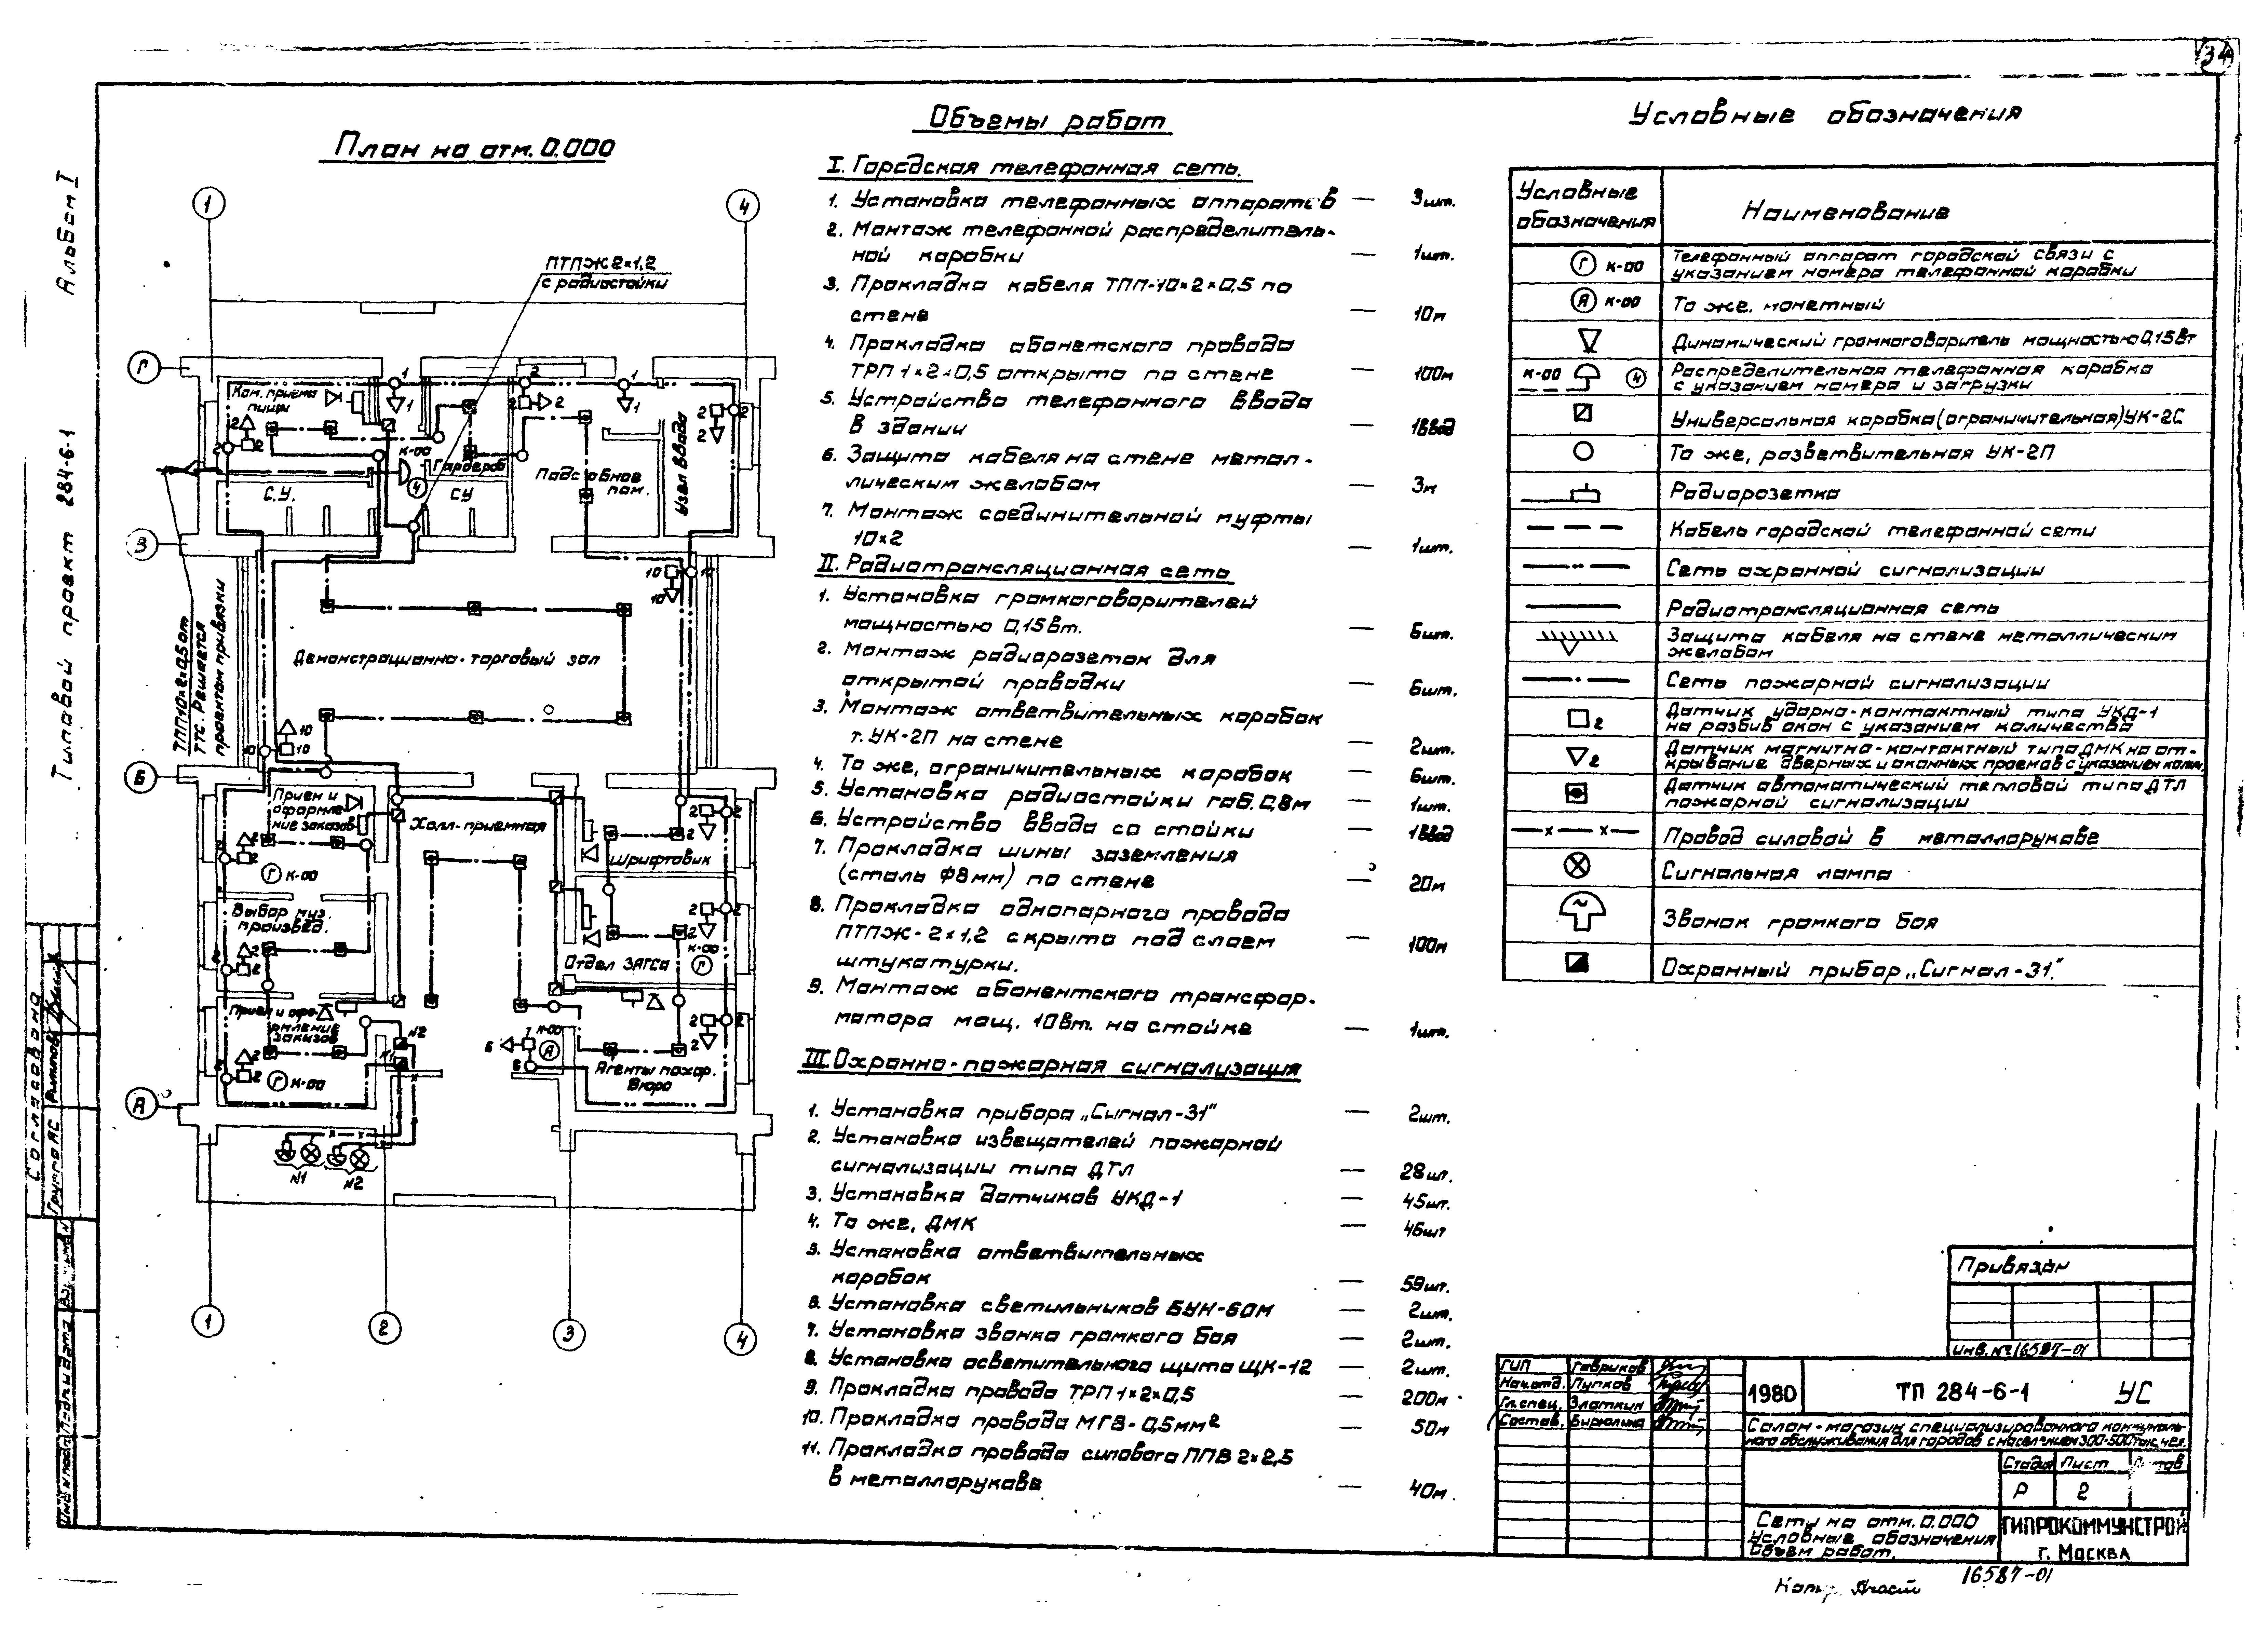 34
Альбом I
Типовой проект 284-6-1
План на отм. 0.000
1
4
ПТПЖ 2×1,2
с радиостойки
Г
Ком. приема
пищи
К-00
Гардероб
Подсобное
пом.
Узел ввода
С.У.
4
СУ
В
ТПП 10×2×0,5 от
ТТС. Решается
проектом привязки
Демонстрационно-торговый зал
Б
Прием и
оформле-
ние заказов
Холл-приемная
Шрифтовик
Г К-00
Выбор муз.
произвед.
Отдел ЗАГСа
К-00
Г
Прием и офо-
рмление
заказов
N2
N1
К-00
А
Г К-00
Агенты похор.
Бюро
А
N1
N2
1
2
3
4
Объемы работ
I. Городская телефонная сеть.
1. Установка телефонных аппаратов — 3шт.
2. Монтаж телефонной распределитель-
ной коробки — 1шт.
3. Прокладка кабеля ТПП-10×2×0,5 по
стене — 10м
4. Прокладка абонетского провода
ТРП 1×2×0,5 открыто по стене — 100м
5. Устройство телефонного ввода
в здании — 1ввод
6. Защита кабеля на стене метал-
лическим желобом — 3м
7. Монтаж соединительной муфты
10×2 — 1шт.
II. Радиотрансляционная сеть
1. Установка громкоговорителей
мощностью 0,15вт. — 6шт.
2. Монтаж радиорозеток для
открытой проводки — 6шт.
3. Монтаж ответвительных коробок
т. УК-2П на стене — 2шт.
4. То же, ограничительных коробок — 6шт.
5. Установка радиостойки габ. 0,8м — 1шт.
6. Устройство ввода со стойки — 1ввод
7. Прокладка шины заземления
(сталь ф8мм) по стене — 20м
8. Прокладка однопарного провода
ПТПЖ-2×1,2 скрыто под слоем — 100м
штукатурки.
9. Монтаж абонентского трансфор-
матора мощ. 10вт. на стойке — 1шт.
III. Охранно-пожарная сигнализация
1. Установка прибора „Сигнал-31" — 2шт.
2. Установка извещателей пожарной
сигнализации типа ДТЛ — 28шт.
3. Установка датчиков УКД-1 — 45шт.
4. То же, ДМК — 46шт
5. Установка ответвительных
коробок — 59шт.
6. Установка светильников БУН-60М — 2шт.
7. Установка звонка громкого боя — 2шт.
8. Установка осветительного щита ЩК-12 — 2шт.
9. Прокладка провода ТРП 1×2×0,5 — 200м
10. Прокладка провода МГВ-0,5мм²  — 50м
11. Прокладка провода силового ППВ 2×2,5
в металлорукаве — 40м.
Условные обозначения
Условные
обозначения
Наименование
Г К-00 Телефонный аппарат городской связи с
указанием номера телефонной коробки
А К-00 То же, монетный
Динамический громкоговоритель мощностью 0,15вт
К-00 4 Распределительная телефонная коробка
с указанием номера и загрузки
Универсальная коробка (ограничительная) УК-2С
То же, разветвительная УК-2П
Радиорозетка
Кабель городской телефонной сети
Сеть охранной сигнализации
Радиотрансляционная сеть
Защита кабеля на стене металлическим
желобом
Сеть пожарной сигнализации
2 Датчик ударно-контактный типа УКД-1
на разбив окон с указанием количества
2 Датчик магнитно-контактный типа ДМК на от-
крывание дверных и оконных проемов с указанием колич.
Датчик автоматический тепловой типа ДТЛ
пожарной сигнализации
Провод силовой в металлорукаве
Сигнальная лампа
Звонок громкого боя
Охранный прибор „Сигнал-31".
Привязан
инв. № 16587-01
ГИП Гавриков
Нач. отд. Пупков
Гл. спец. Златкин
Состав. Бирюлина
1980
ТП 284-6-1 УС
Салон-магазин специализированного коммуналь-
ного обслуживания для городов с населением 300-500 тыс. чел.
Стадия Лист
Р 2
Сети на отм. 0.000
Условные обозначения
Объем работ.
ГИПРОКОММУНСТРОЙ
г. Москва
16587-01
Согласовано
Группа АС